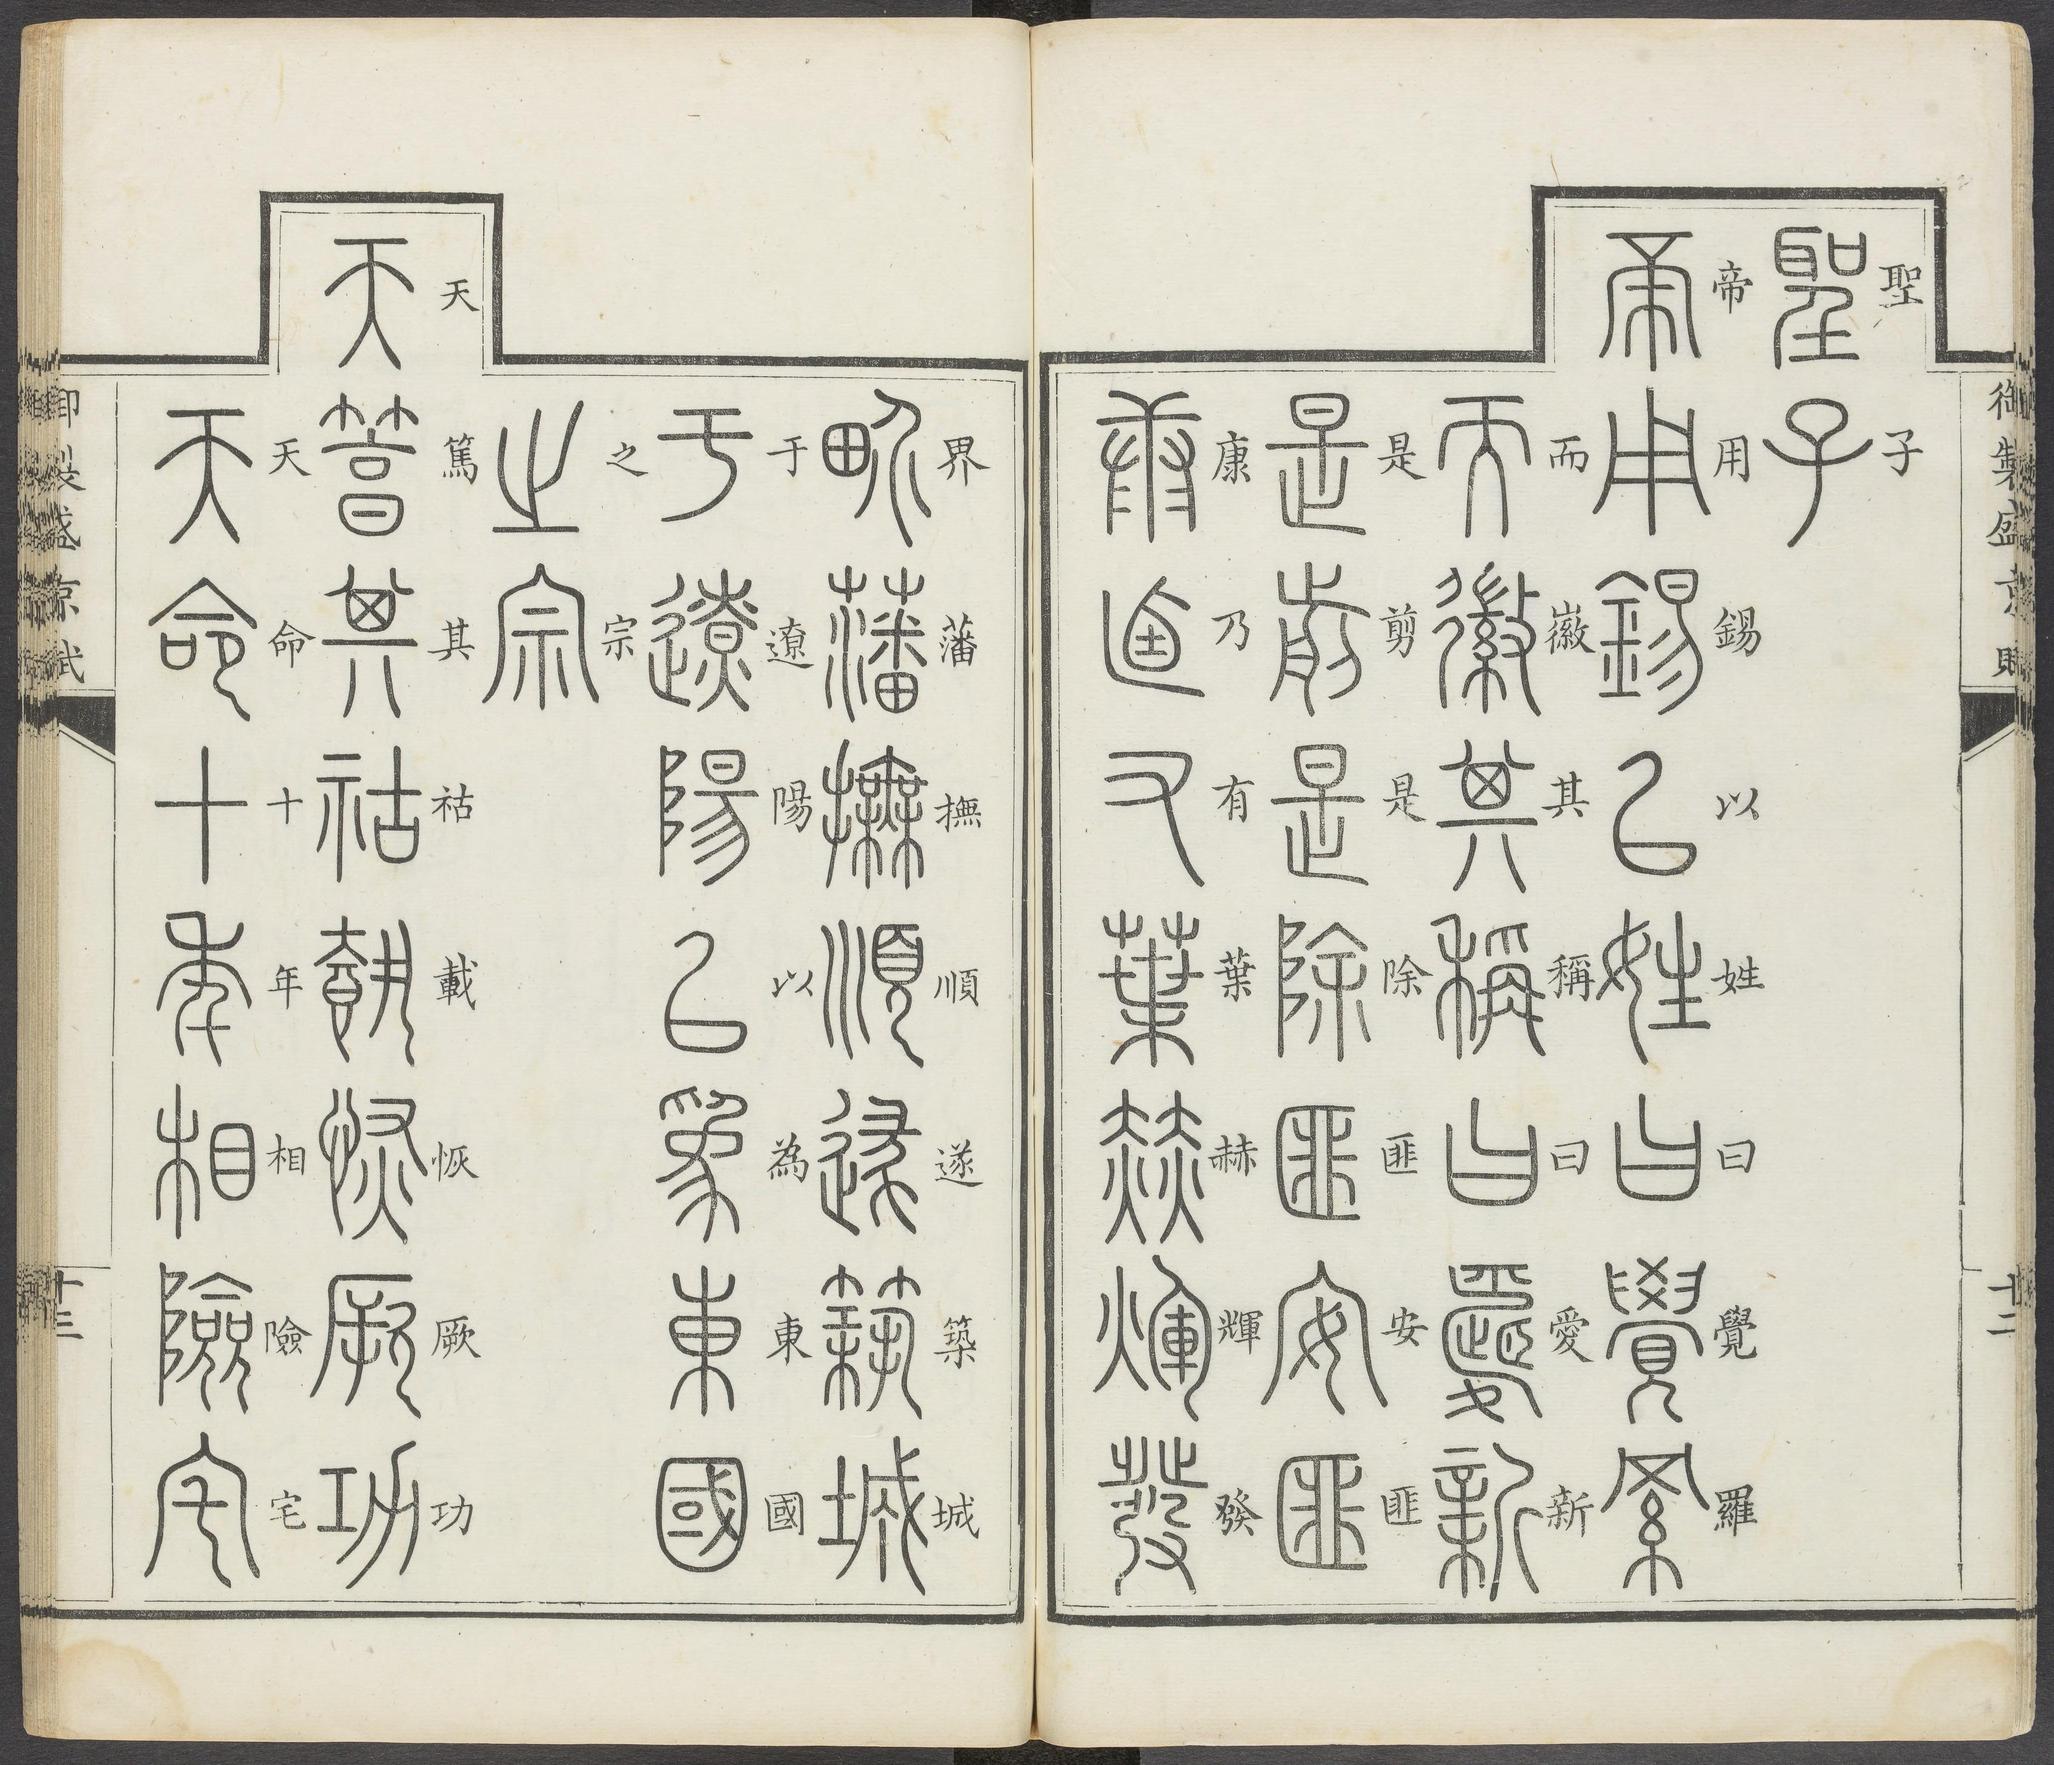 御製盛京賦
十二
聖子
帝用錫以姓曰覺羅
而徽其稱曰愛新
是剪是除匪安匪
康乃有葉赫輝發
界藩撫順遂築城
于遼陽以為東國
之宗
天篤其祜載恢厥功
天命十年相險宅
御製盛京賦
十三